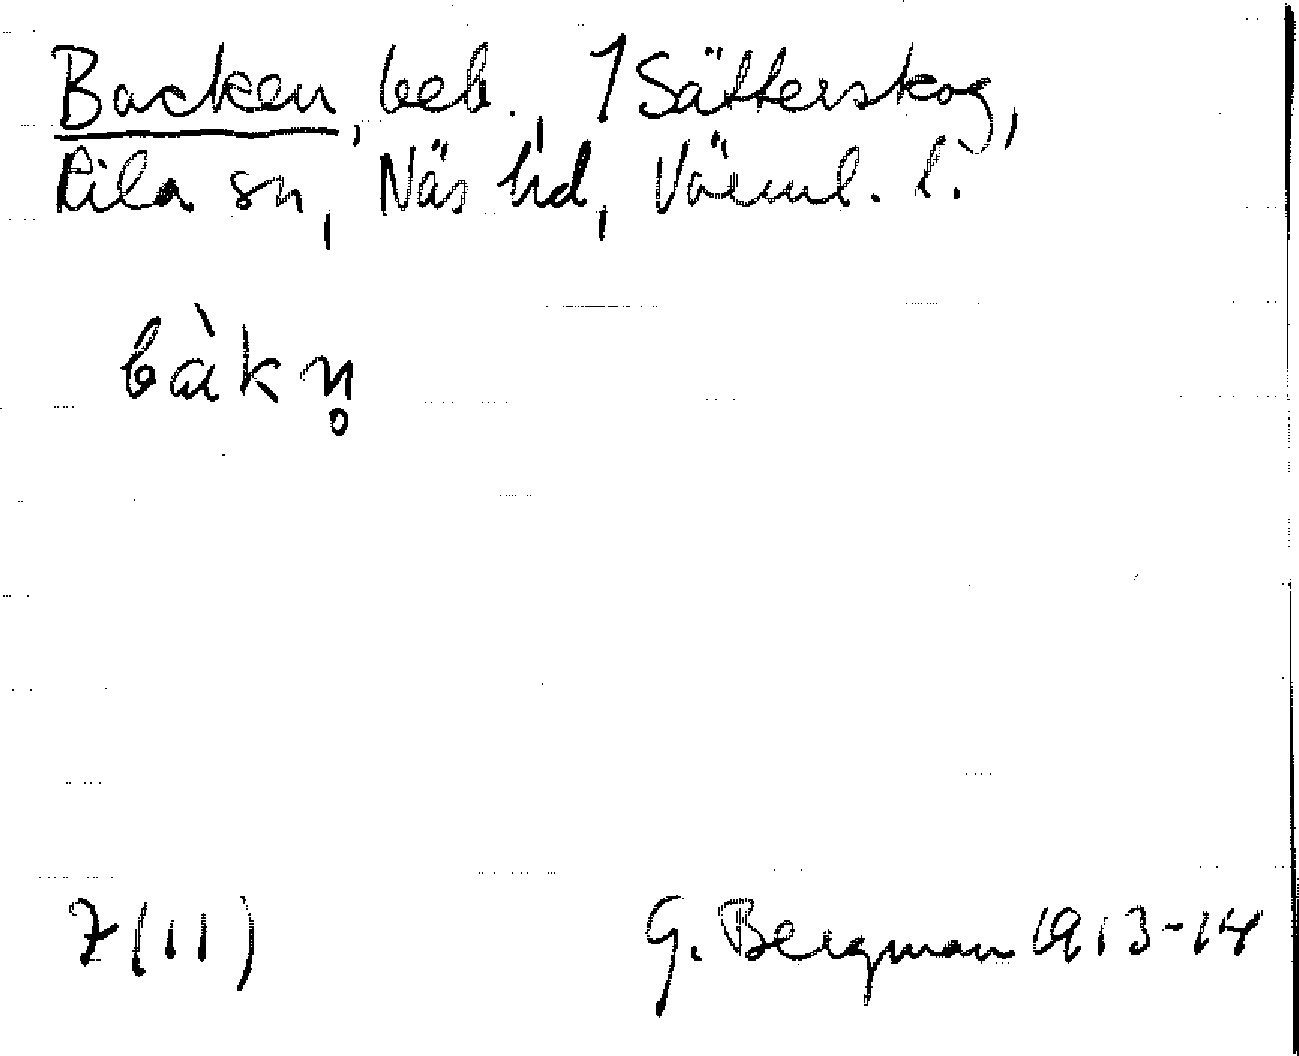 Backen, beb., 1 Sätterskog,
Kila sn, Näs hd, Värml. l.
bàkn̥
7(11)
G. Bergman 1913-14